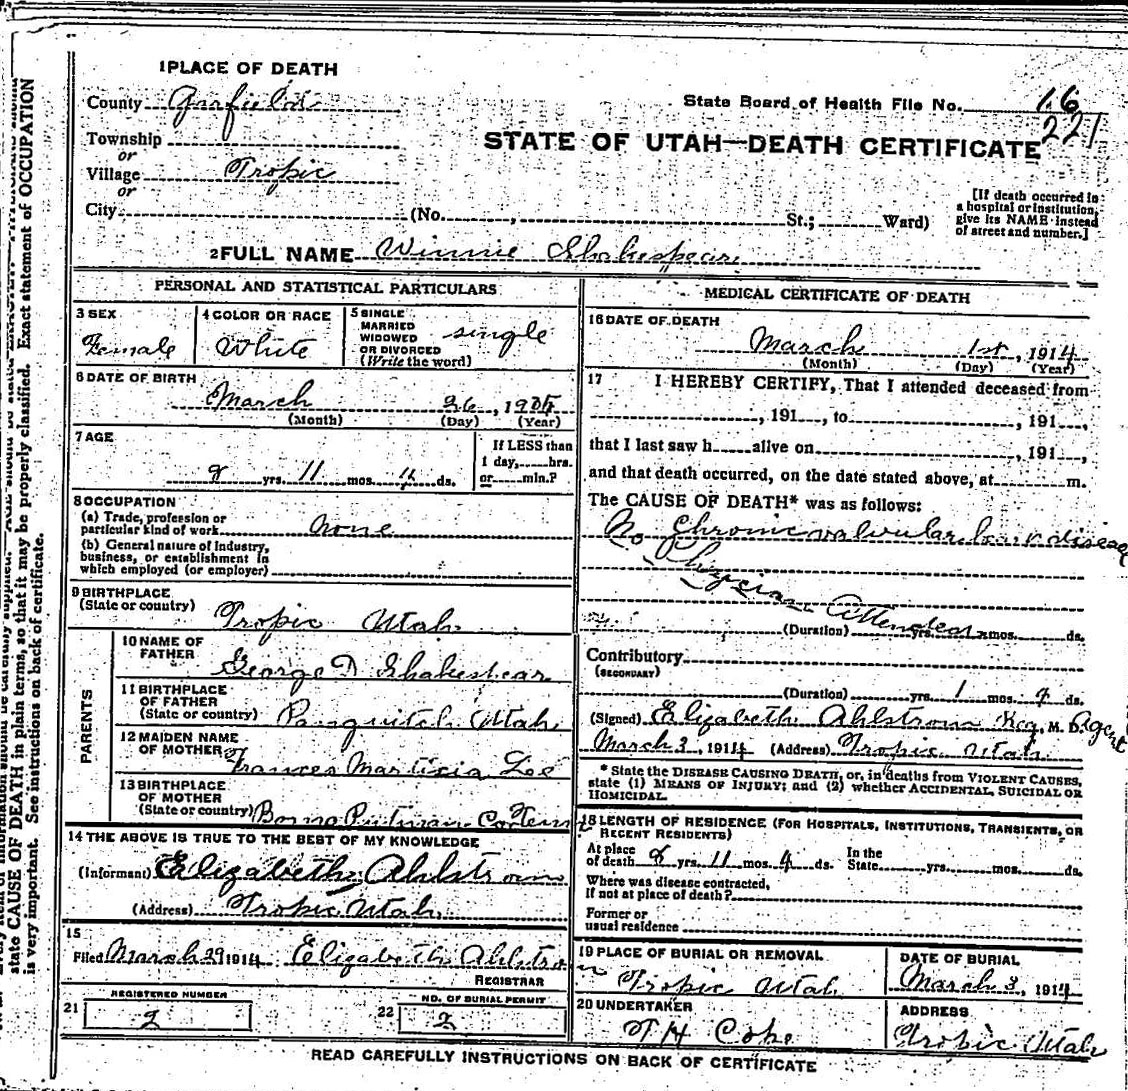 1 PLACE OF DEATH
County Garfield
State Board of Health File No. 16
221
Township
or
STATE OF UTAH—DEATH CERTIFICATE
Village Tropic
or
City (No. , St.; Ward)
[If death occurred in
a hospital or institution,
give its NAME instead
of street and number.]
2 FULL NAME Winnie Shakespear
PERSONAL AND STATISTICAL PARTICULARS
3 SEX
Female
4 COLOR OR RACE
White
5 SINGLE
MARRIED
WIDOWED
OR DIVORCED
(Write the word)
single
6 DATE OF BIRTH
March 26, 190
(Month) (Day) (Year)
7 AGE
yrs. 11 mos. 4 ds.
If LESS than
1 day, hrs.
or min.?
8 OCCUPATION
(a) Trade, profession or
particular kind of work None
(b) General nature of industry,
business, or establishment in
which employed (or employer)
9 BIRTHPLACE
(State or country) Tropic Utah
PARENTS
10 NAME OF
FATHER
George D Shakespear
11 BIRTHPLACE
OF FATHER
(State or country) Panguitch Utah
12 MAIDEN NAME
OF MOTHER
Frances Lee
13 BIRTHPLACE
OF MOTHER
(State or country)
14 THE ABOVE IS TRUE TO THE BEST OF MY KNOWLEDGE
(Informant) Elizabeth Ahlstrom
(Address) Tropic Utah
15
Filed March 29 1914 Elizabeth Ahlstrom
REGISTRAR
21
REGISTERED NUMBER
2
22
NO. OF BURIAL PERMIT
2
MEDICAL CERTIFICATE OF DEATH
16 DATE OF DEATH
March 1st, 1914
(Month) (Day) (Year)
17 I HEREBY CERTIFY, That I attended deceased from
, 191 , to , 191 ,
that I last saw h alive on , 191 ,
and that death occurred, on the date stated above, at m.
The CAUSE OF DEATH* was as follows:
Chronic valvular heart disease
No Physician Attendease
(Duration) yrs. mos. ds.
Contributory
(SECONDARY)
(Duration) yrs. 1 mos. ds.
(Signed) Elizabeth Ahlstrom Reg, M. D. Agent
March 3, 1914 (Address) Tropic Utah
* State the DISEASE CAUSING DEATH, or, in deaths from VIOLENT CAUSES,
state (1) MEANS OF INJURY; and (2) whether ACCIDENTAL, SUICIDAL OR
HOMICIDAL.
18 LENGTH OF RESIDENCE (FOR HOSPITALS, INSTITUTIONS, TRANSIENTS, OR
RECENT RESIDENTS)
At place
of death 8 yrs. 11 mos. 4 ds.
In the
State yrs. mos. ds.
Where was disease contracted,
if not at place of death?
Former or
usual residence
19 PLACE OF BURIAL OR REMOVAL
Tropic Utah
DATE OF BURIAL
March 3, 1914
20 UNDERTAKER
ADDRESS
Tropic Utah
READ CAREFULLY INSTRUCTIONS ON BACK OF CERTIFICATE
state CAUSE OF DEATH in plain terms, so that it may be properly classified. Exact statement of OCCUPATION
is very important. See instructions on back of certificate.